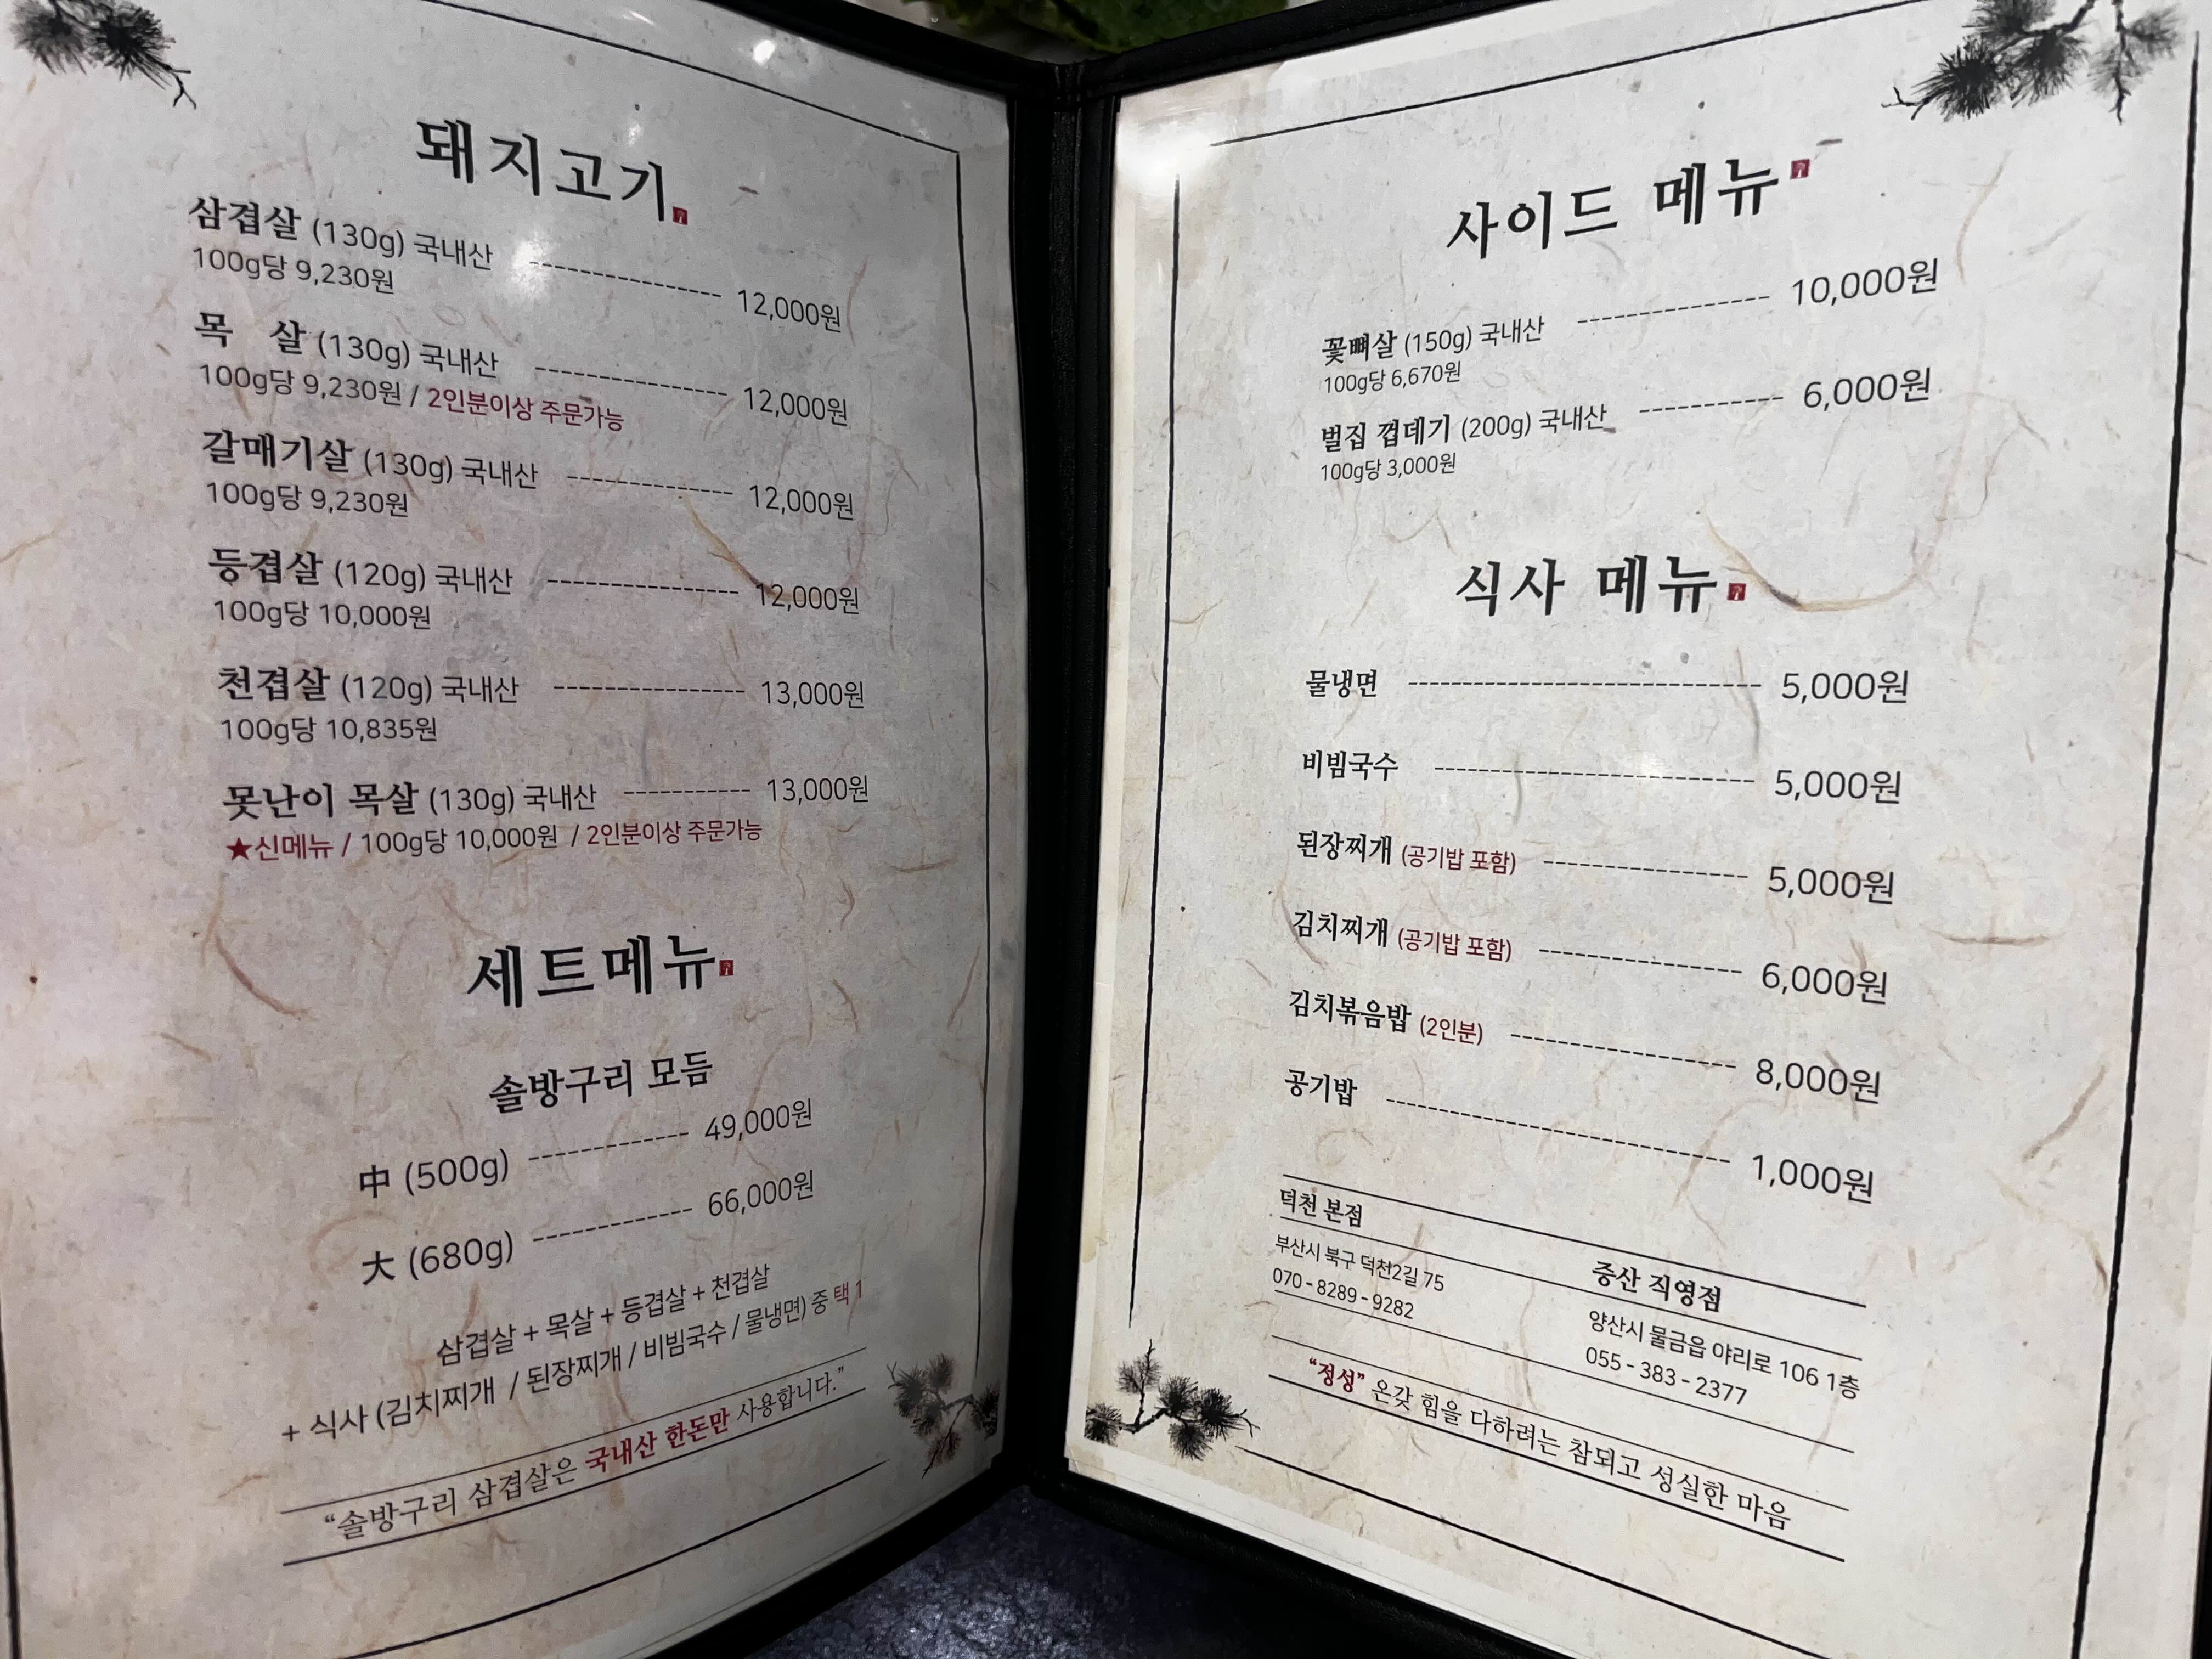 돼지고기
삼겹살 (130g) 국내산 ---------------- 12,000원
100g당 9,230원
목 살 (130g) 국내산 ---------------- 12,000원
100g당 9,230원 / 2인분이상 주문가능
갈매기살 (130g) 국내산 -------------- 12,000원
100g당 9,230원
등겹살 (120g) 국내산 ---------------- 12,000원
100g당 10,000원
천겹살 (120g) 국내산 ---------------- 13,000원
100g당 10,835원
못난이 목살 (130g) 국내산 ----------- 13,000원
★신메뉴 / 100g당 10,000원 / 2인분이상 주문가능
세트메뉴
솔방구리 모듬
中 (500g) ------------- 49,000원
大 (680g) ------------- 66,000원
삼겹살 + 목살 + 등겹살 + 천겹살
+ 식사 (김치찌개 / 된장찌개 / 비빔국수 / 물냉면) 중 택 1
“솔방구리 삼겹살은 국내산 한돈만 사용합니다.”
사이드 메뉴
꽃뼈살 (150g) 국내산 -------------- 10,000원
100g당 6,670원
벌집 껍데기 (200g) 국내산 ----------- 6,000원
100g당 3,000원
식사 메뉴
물냉면 -------------------------------- 5,000원
비빔국수 ----------------------------- 5,000원
된장찌개 (공기밥 포함) ------------------ 5,000원
김치찌개 (공기밥 포함) ------------------ 6,000원
김치볶음밥 (2인분) -------------------- 8,000원
공기밥 ------------------------------- 1,000원
덕천 본점
부산시 북구 덕천2길 75
070 - 8289 - 9282
증산 직영점
양산시 물금읍 야리로 106 1층
055 - 383 - 2377
“정성” 온갖 힘을 다하려는 참되고 성실한 마음